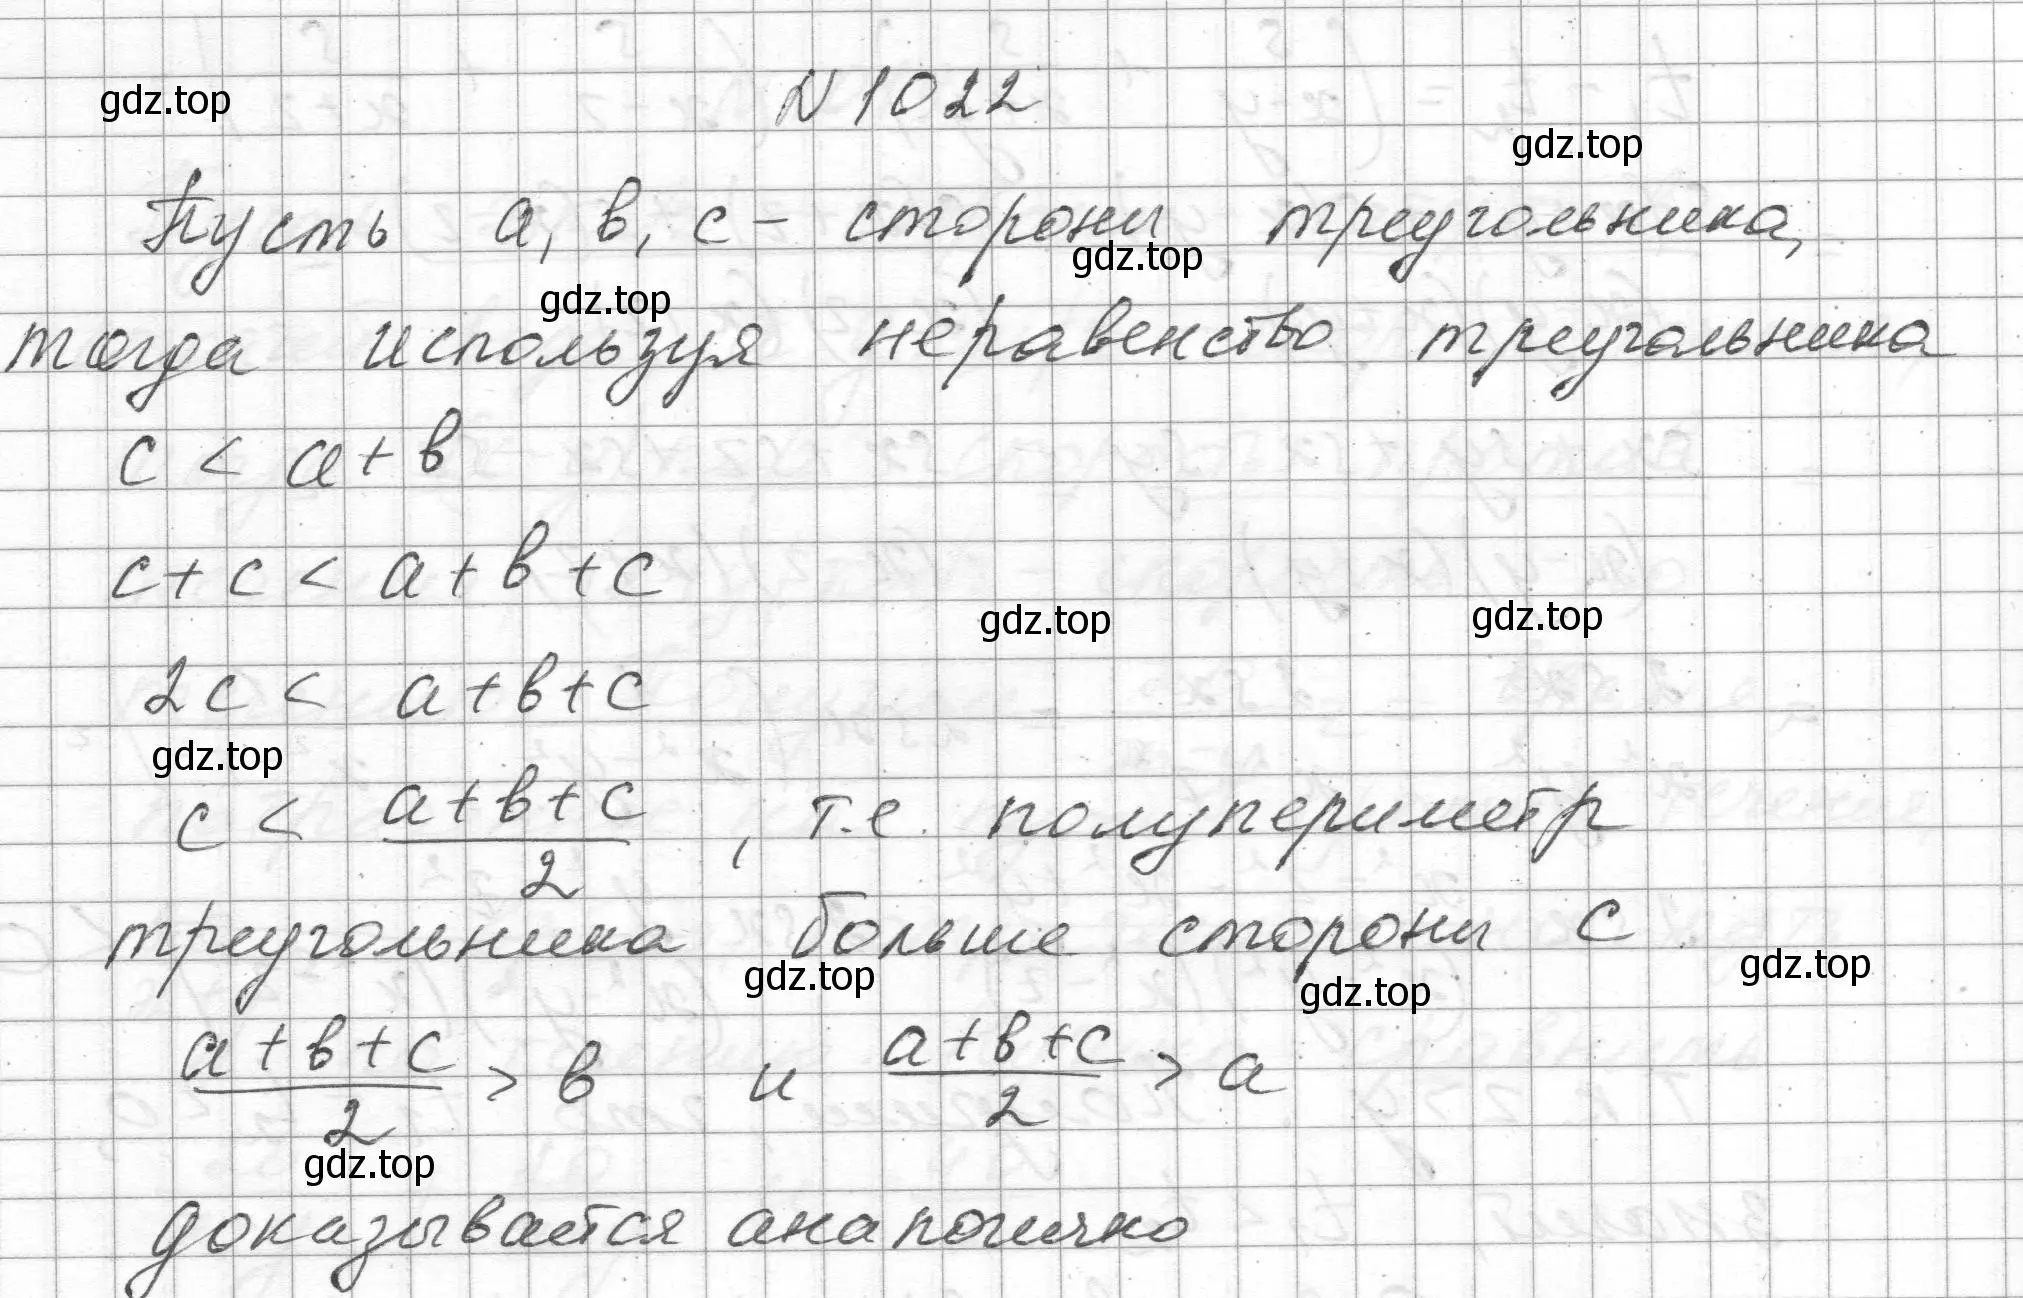 N 1022
gdz.top
gdz.top
Пусть a, b, c - стороны треугольника,
gdz.top
gdz.top
тогда используя неравенство треугольника
c < a + b
c + c < a + b + c
gdz.top
gdz.top
2c < a + b + c
gdz.top
c < \frac{a + b + c}{2}, т.е. полупериметр
треугольника больше стороны c
gdz.top
gdz.top
gdz.top
\frac{a + b + c}{2} > b и \frac{a + b + c}{2} > a
gdz.top
доказывается аналогично